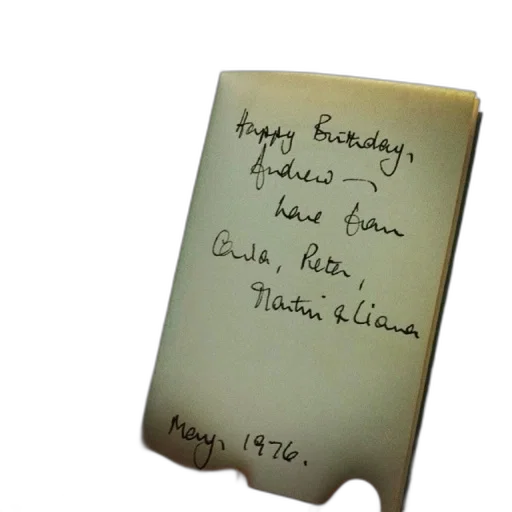 Happy Birthday,
Andrew —
love from
Carla, Peter,
Martin & Liana
May, 1976.